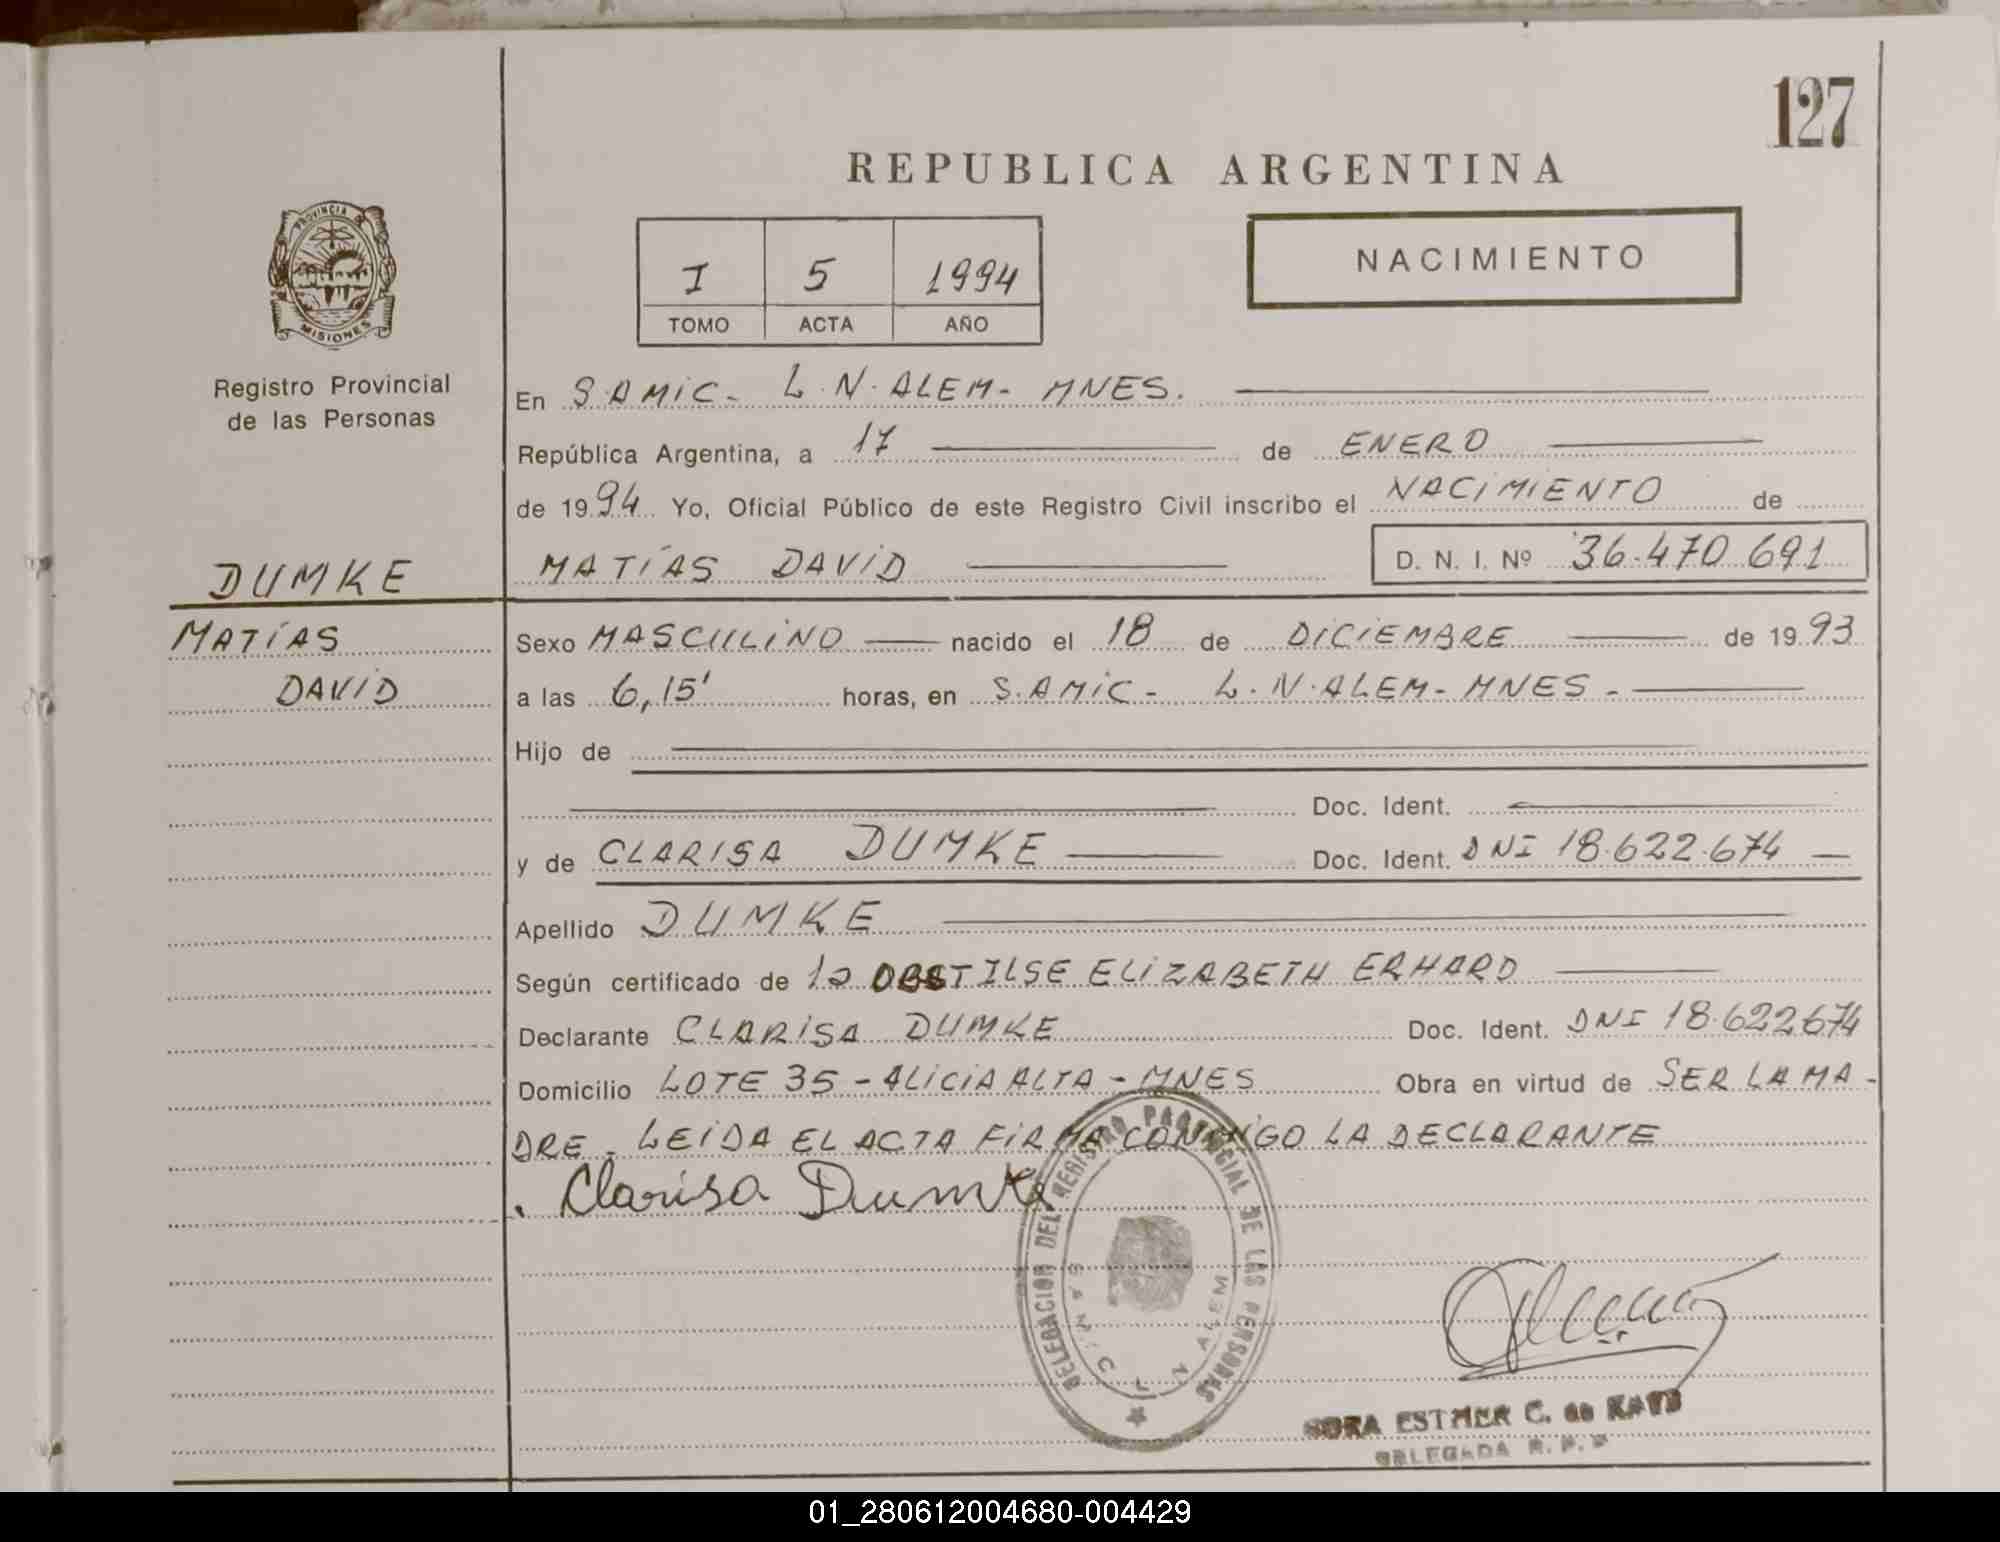 127
REPUBLICA ARGENTINA
I 5 1994
TOMO ACTA AÑO
NACIMIENTO
PROVINCIA DE
MISIONES
Registro Provincial
de las Personas
En S.AMIC- L.N.ALEM- MNES.
República Argentina, a 17 de ENERO
de 1994 Yo, Oficial Público de este Registro Civil inscribo el NACIMIENTO de
DUMKE
MATÍAS DAVID D. N. I. Nº 36.470.691
MATÍAS
DAVID
Sexo MASCULINO nacido el 18 de DICIEMBRE de 1993
a las 6,15' horas, en S.AMIC- L.N.ALEM-MNES-
Hijo de
Doc. Ident.
y de CLARISA DUMKE Doc. Ident. DNI 18.622.674
Apellido DUMKE
Según certificado de la OBST ILSE ELIZABETH ERHARD
Declarante CLARISA DUMKE Doc. Ident. DNI 18.622674
Domicilio LOTE 35-ALICIA ALTA-MNES Obra en virtud de SER LA MA-
DRE. LEIDA EL ACTA FIRMA CONMIGO LA DECLARANTE
. Clarisa Dumke
DELEGACION DEL REGISTRO PROVINCIAL DE LAS PERSONAS
L N ALEM
ESTHER C. de
DELEGADA R. P. P
01_280612004680-004429